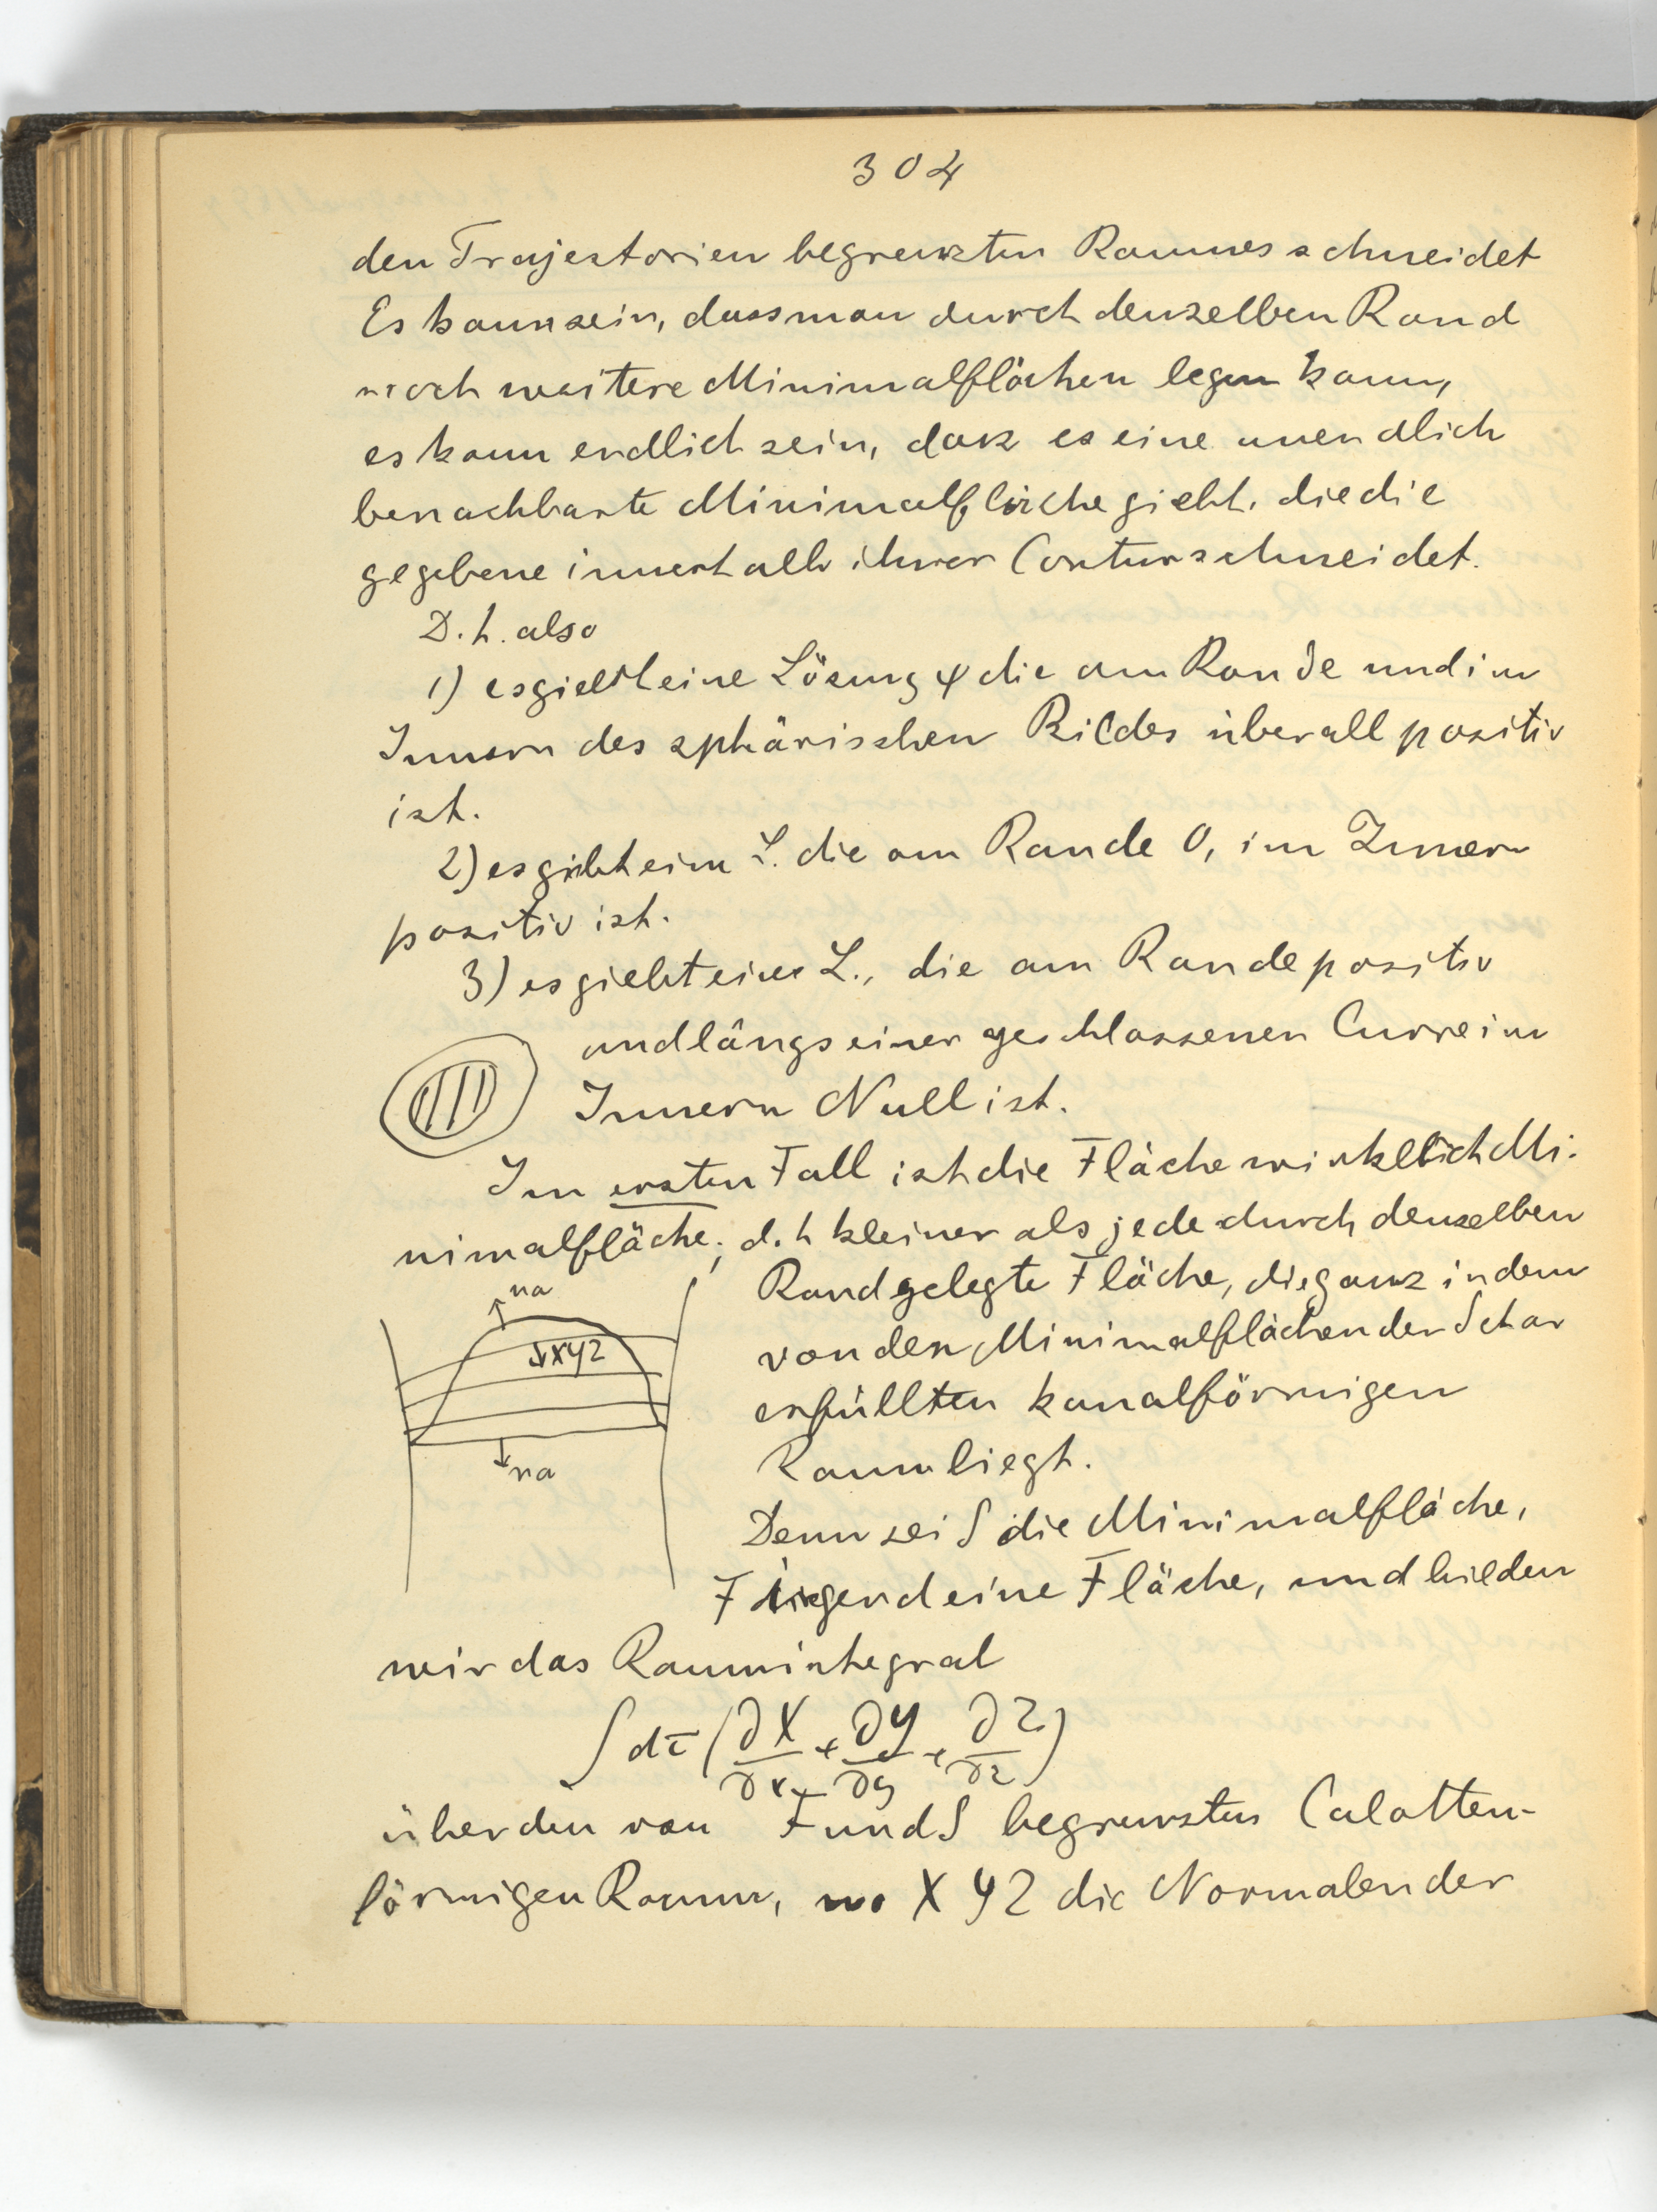 304
den Trajectorien begrenzten Raumes schneidet
Es kann sein, dass man durch denselben Rand
noch weitere Minimalflächen legen kann,
es kann endlich sein, dass es eine unendlich
benachbarte Minimalfläche giebt, die die
gegebene innerhalb ihrer Contur schneidet.
D.h. also
1) es giebt eine Lösung φ die am Rande und im
Innern des sphärischen Bildes überall positiv
ist.
2) es giebt eine L. die am Rande 0, im Innern
positiv ist.
3) es giebt eine L., die am Rande positiv
und längs einer geschlossenen Curve im
Innern Null ist.
Im ersten Fall ist die Fläche wirklich Mi-
nimalfläche, d.h kleiner als jede durch denselben
Rand gelegte Fläche, die ganz in dem
von den Minimalflächen der Schar
erfüllten kanalförmigen
Raum liegt.
na
↓XYZ
na
Denn sei S die Minimalfläche,
F irgend eine Fläche, und bilden
wir das Raumintegral
∫dτ(∂X/∂x + ∂Y/∂y + ∂Z/∂z)
über den von F und S begrenzten Calotten-
förmigen Raum, wo X Y Z die Normalen der